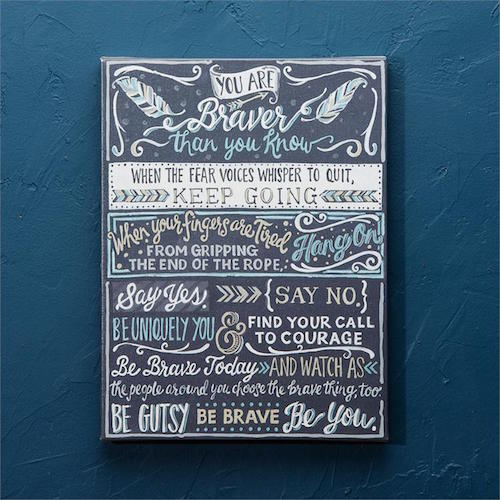 YOU ARE
Braver
than you know
WHEN THE FEAR VOICES WHISPER TO QUIT,
KEEP GOING
When your fingers are Tired
FROM GRIPPING
THE END OF THE ROPE,
Hang On!
Say Yes.
{SAY NO.}
BE UNIQUELY YOU
&
FIND YOUR CALL
TO COURAGE
Be Brave Today
AND WATCH AS
the people around you choose the brave thing, too.
BE GUTSY BE BRAVE Be You.